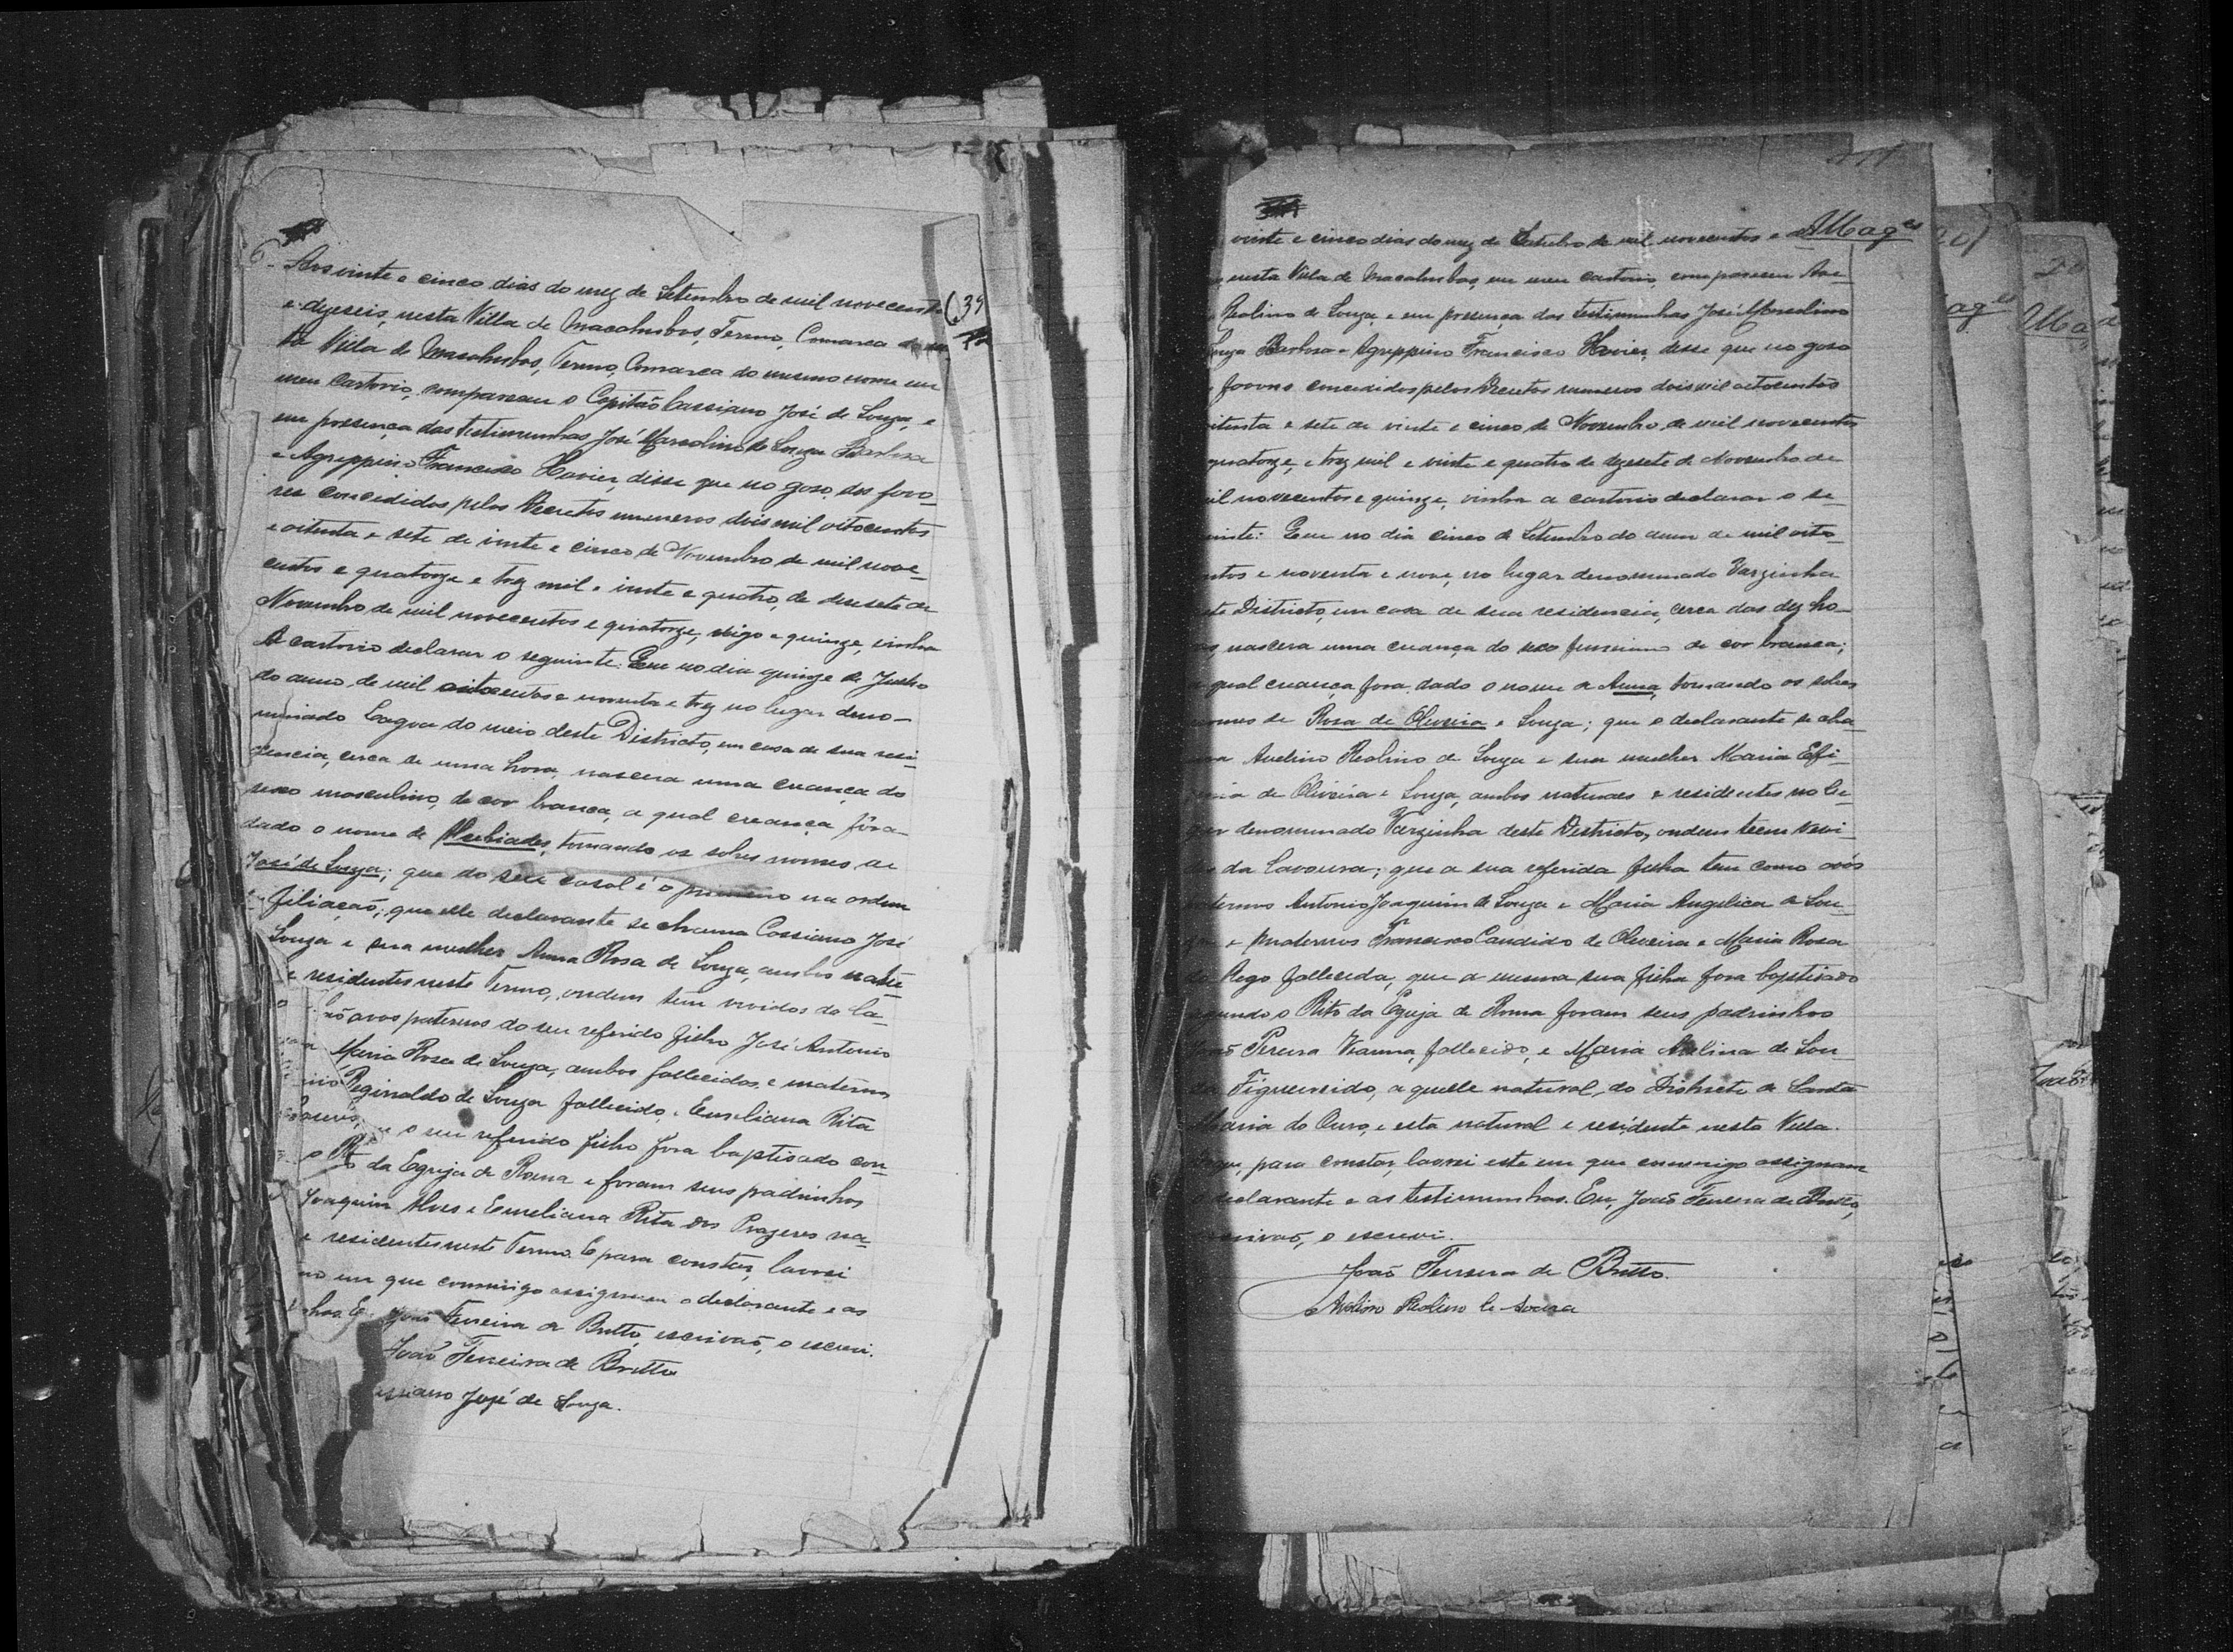 Aos vinte e cinco dias do mez de Setembro de mil novecentos
e dezeseis, nesta Villa de Macahubas, Termo, Comarca
Villa de Macahubas, Termo, Comarca do mesmo nome em
meu cartorio, compareceu o Capitão Cassiano José de Souza, e
em presença das testimunhas José Marcolino de Souza Barbosa
e Agreppino Francisco Xavier, disse que no goso dos favo-
res concedidos pelos Decretos numeros dois mil oitocentos
e oitenta e sete de vinte e cinco de Novembro de mil nove-
centos e quatorze e trez mil e vinte e quatro, de desesete de
Novembro de mil novecentos e quatorze, digo e quinze, vinha
A cartorio declarar o seguinte: Que no dia quinze de
do anno de mil oitocentos e noventa e trez no lugar deno-
minado Lagoa do meio deste Districto, em casa de sua resi-
dencia, cerca de uma hora, nascera uma creança do
sexo masculino, de cor branca, a qual creança fôra
dado o nome de Alcebiades, tomando os sobres nomes de
José de Souza; que do seu casal é o primeiro na ordem
filiação; que elle declarante se chama Cassiano José
Souza e sua mulher Anna Rosa de Souza, ambos
e residentes neste Termo, ondem tem vividos da la-
avos paternos do seu referido filho José Antonio
Maria Rosa de Souza, ambos fallecidos, e maternos
Reginaldo de Souza fallecido, e Emeliana Rita
o seu referido filho fora baptisado con-
o Rito da Egreja de Roma e foram seus padrinhos
Joaquim Alves e Emeliana Rita dos Prazeres na-
e residentes neste Termo. E para constar, lavrei
em que commigo assignam o declarante e as
João Ferreira de Britto, escrivão, o escrevi.
João Ferreira de Britto
Cassiano José de Souza.
vinte e cinco dias do mez de Setembro de mil novecentos e
nesta Villa de Macahubas, em meu cartorio, compareceu Ave-
Realino de Souza, e em presença das testimunhas José Marcolino
Souza Barbosa e Agreppino Francisco Xavier, disse que no goso
favores concedidos pelos Decretos numeros dois mil oitocentos
oitenta e sete de vinte e cinco de Novembro de mil novecentos
quatorze, e trez mil e vinte e quatro de dezesete de Novembro de
mil novecentos e quinze, vinha a cartorio declarar o se-
guinte: Que no dia cinco de Setembro do anno de mil oito-
centos e noventa e nove, no lugar denominado Varzinha
deste Districto, em casa de sua residencia, cerca das dez ho-
ras, nascera uma creança do sexo femenino de cor branca;
a qual creança fora dado o nome de Anna, tomando os sobres
nomes de Rosa de Oliveira e Souza; que o declarante se cha-
ma Avelino Realino de Souza e sua mulher Maria Efi-
genia de Oliveira e Souza, ambos naturaes e residentes no lu-
gar denominado Varzinha deste Districto, ondem teem vivi-
dos da Lavoura; que a sua referida filha tem como avós
paternos Antonio Joaquim de Souza e Maria Angelica de Sou-
za e maternos Francisco Candido de Oliveira e Maria Rosa
do Rego fallecida, que a mesma sua filha fora baptisado
segundo o Rito da Egreja de Roma foram seus padrinhos
João Pereira Vianna, fallecido, e Maria de Sou
Figueireido, aquelle natural, do Districto de Santa
Maria do Ouro, e esta natural e residente nesta Villa.
para constar, lavrei este em que commigo assignam
declarante e as testimunhas. Eu, João Ferreira de Britto,
escrivão, o escrevi.
João Ferreira de Britto.
Avelino Realino de Souza